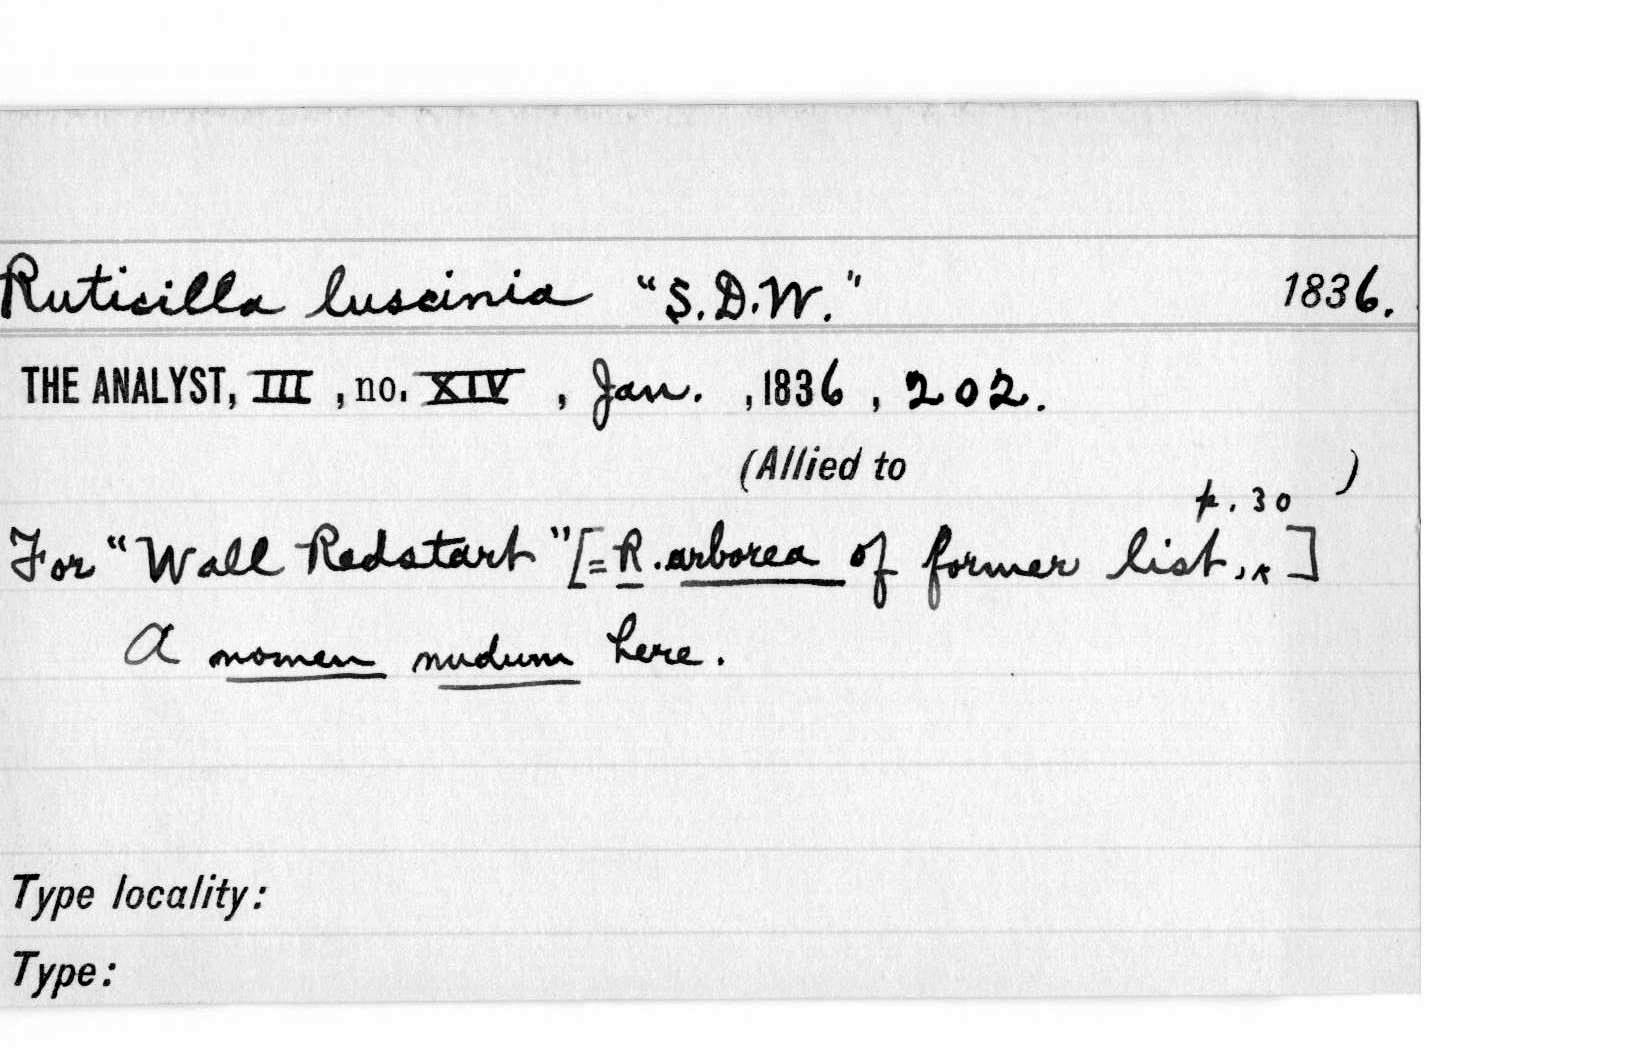 Ruticilla luscinia "S.D.W." 1836.
THE ANALYST, III , no. XIV , Jan. , 1836 , 202.
(Allied to )
p. 30
For "Wall Redstart" [= R. arborea of former list, ]
A nomen nudum here.
Type locality:
Type: